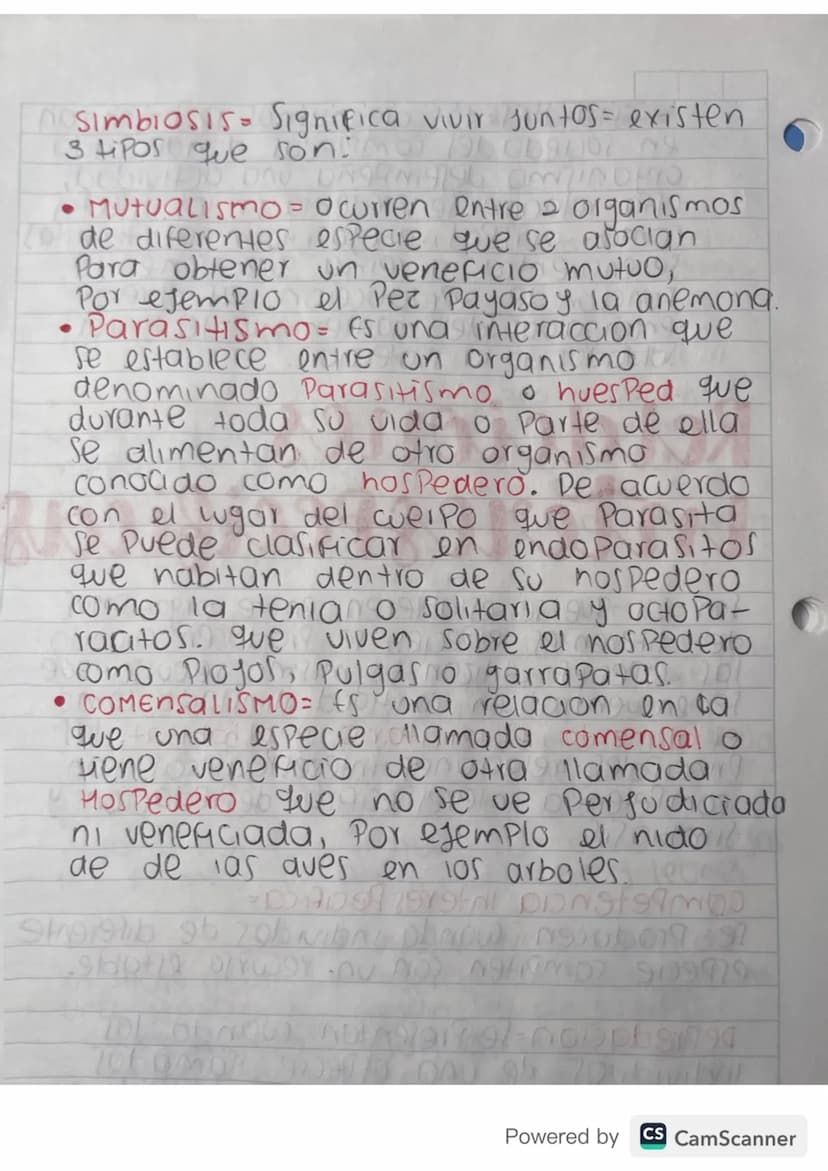 Simbiosis= Significa vivir juntos= existen
3 tipos que son:
• Mutualismo= ocurren entre 2 organismos
de diferentes especie que se asocian
Para obtener un veneficio mutuo,
Por ejemplo el Pez Payaso y la anemona.
• Parasitismo= Es una interaccion que
se establece entre un organismo
denominado Parasitismo o huesped que
durante toda su vida o Parte de ella
se alimentan de otro organismo
conocido como hospedero. De acuerdo
con el lugar del cuerpo que Parasita
se Puede clasificar en endoparasitos
que habitan dentro de su hospedero
como la tenia o solitaria y octopa-
racitos. que viven sobre el hospedero
como Piojos, Pulgas o garrapatas.
• Comensalismo= Es una relacion en la
que una especie llamada comensal o
tiene veneficio de otra llamada
Hospedero que no se ve Perjudiciada
ni veneficiada, Por ejemplo el nido
de de las aves en los arboles.
Powered by CS CamScanner